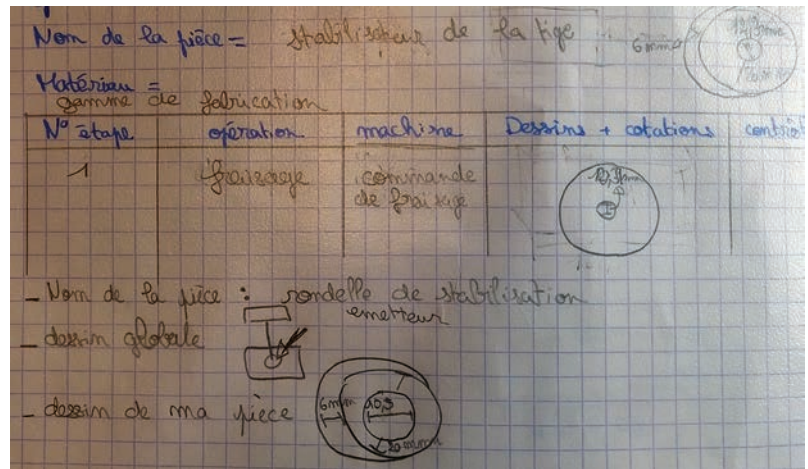 Nom de la pièce = stabilisateur de la tige
6mm
Matériau =
gamme de fabrication
N° étape opération machine Dessins + cotations contrôl
1 fraisage commande de fraisage
- Nom de la pièce : rondelle de stabilisation
emetteur
- dessin globale
- dessin de ma pièce
6mm 10,3
20mm